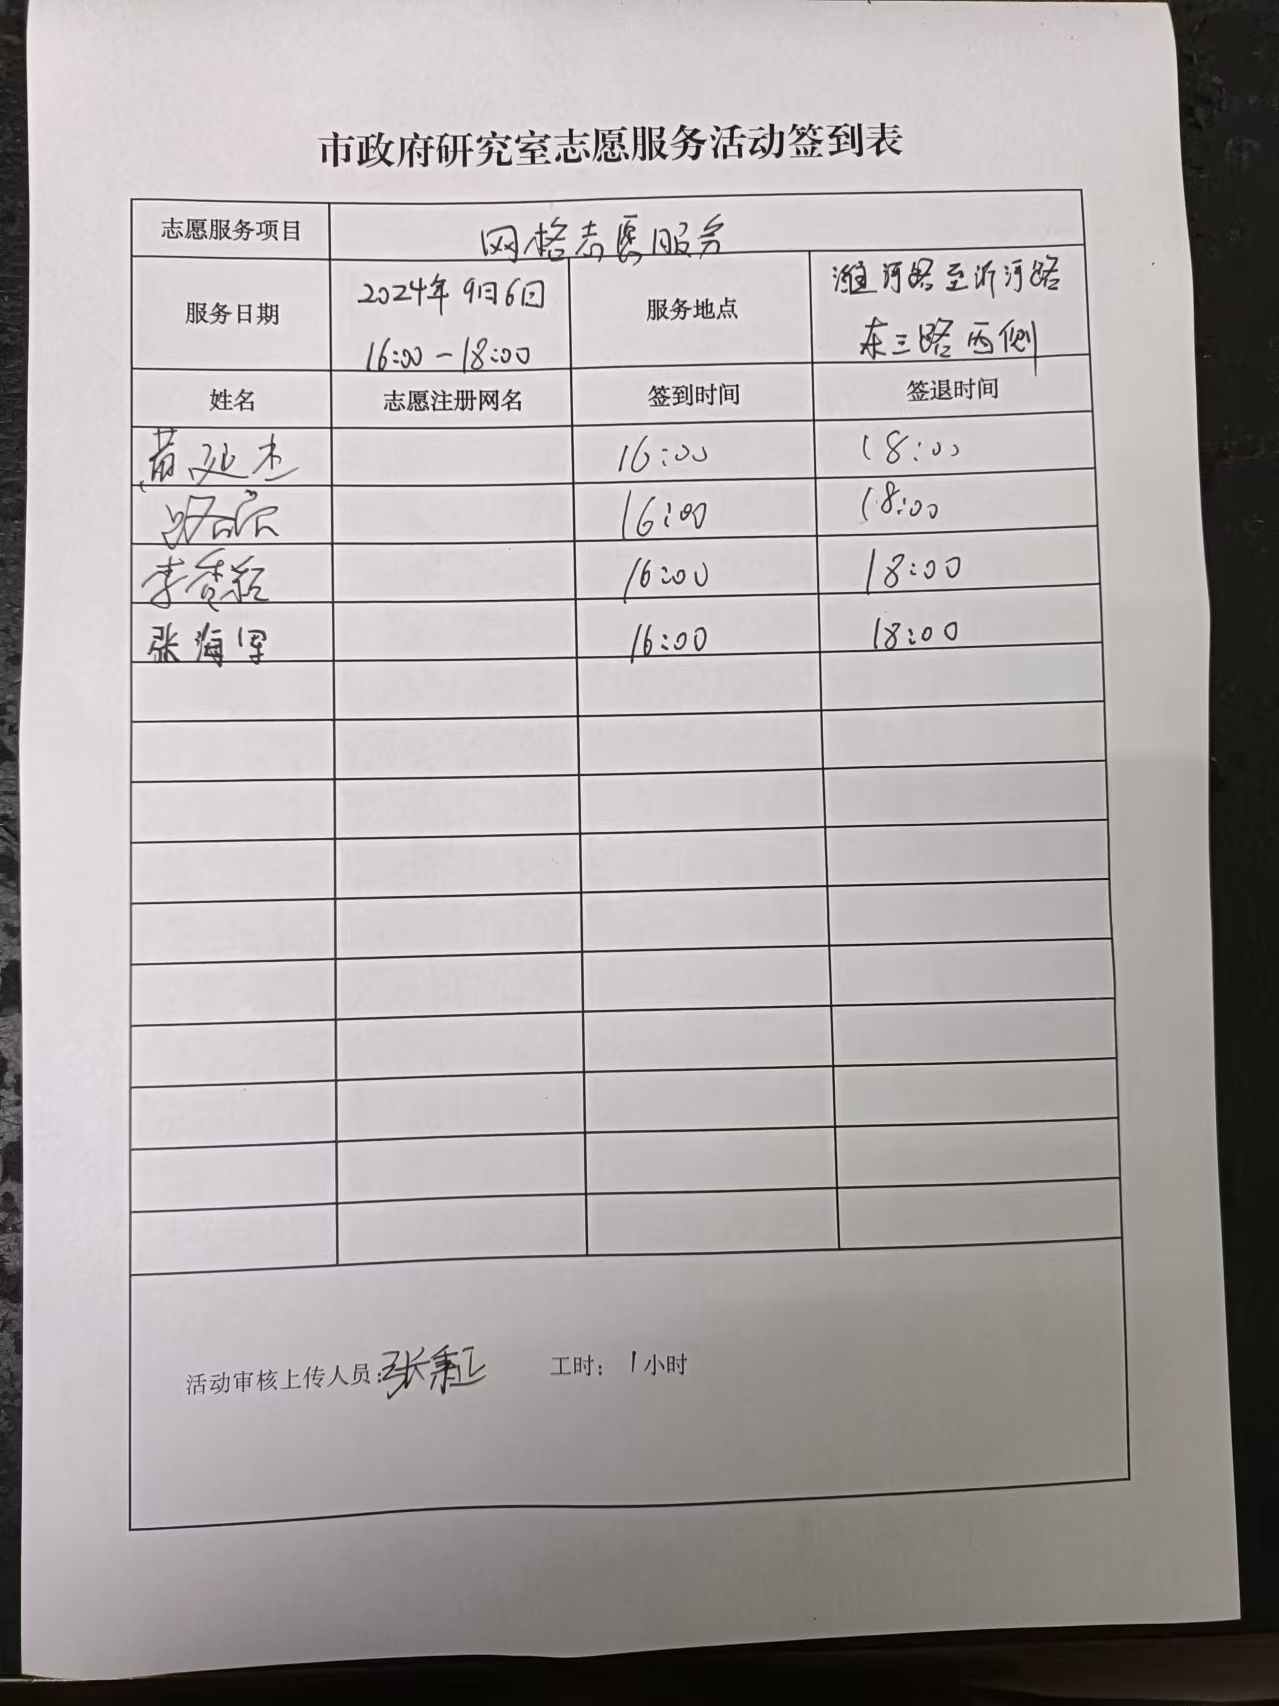 市政府研究室志愿服务活动签到表
志愿服务项目 网格志愿服务
服务日期 2024年9月6日 16:00-18:00 服务地点 潍河路至沂河路 东三路西侧
姓名 志愿注册网名 签到时间 签退时间
黄延杰 16:00 18:00
16:00 18:00
李秀 16:00 18:00
张海军 16:00 18:00
活动审核上传人员:张 工时: 1小时